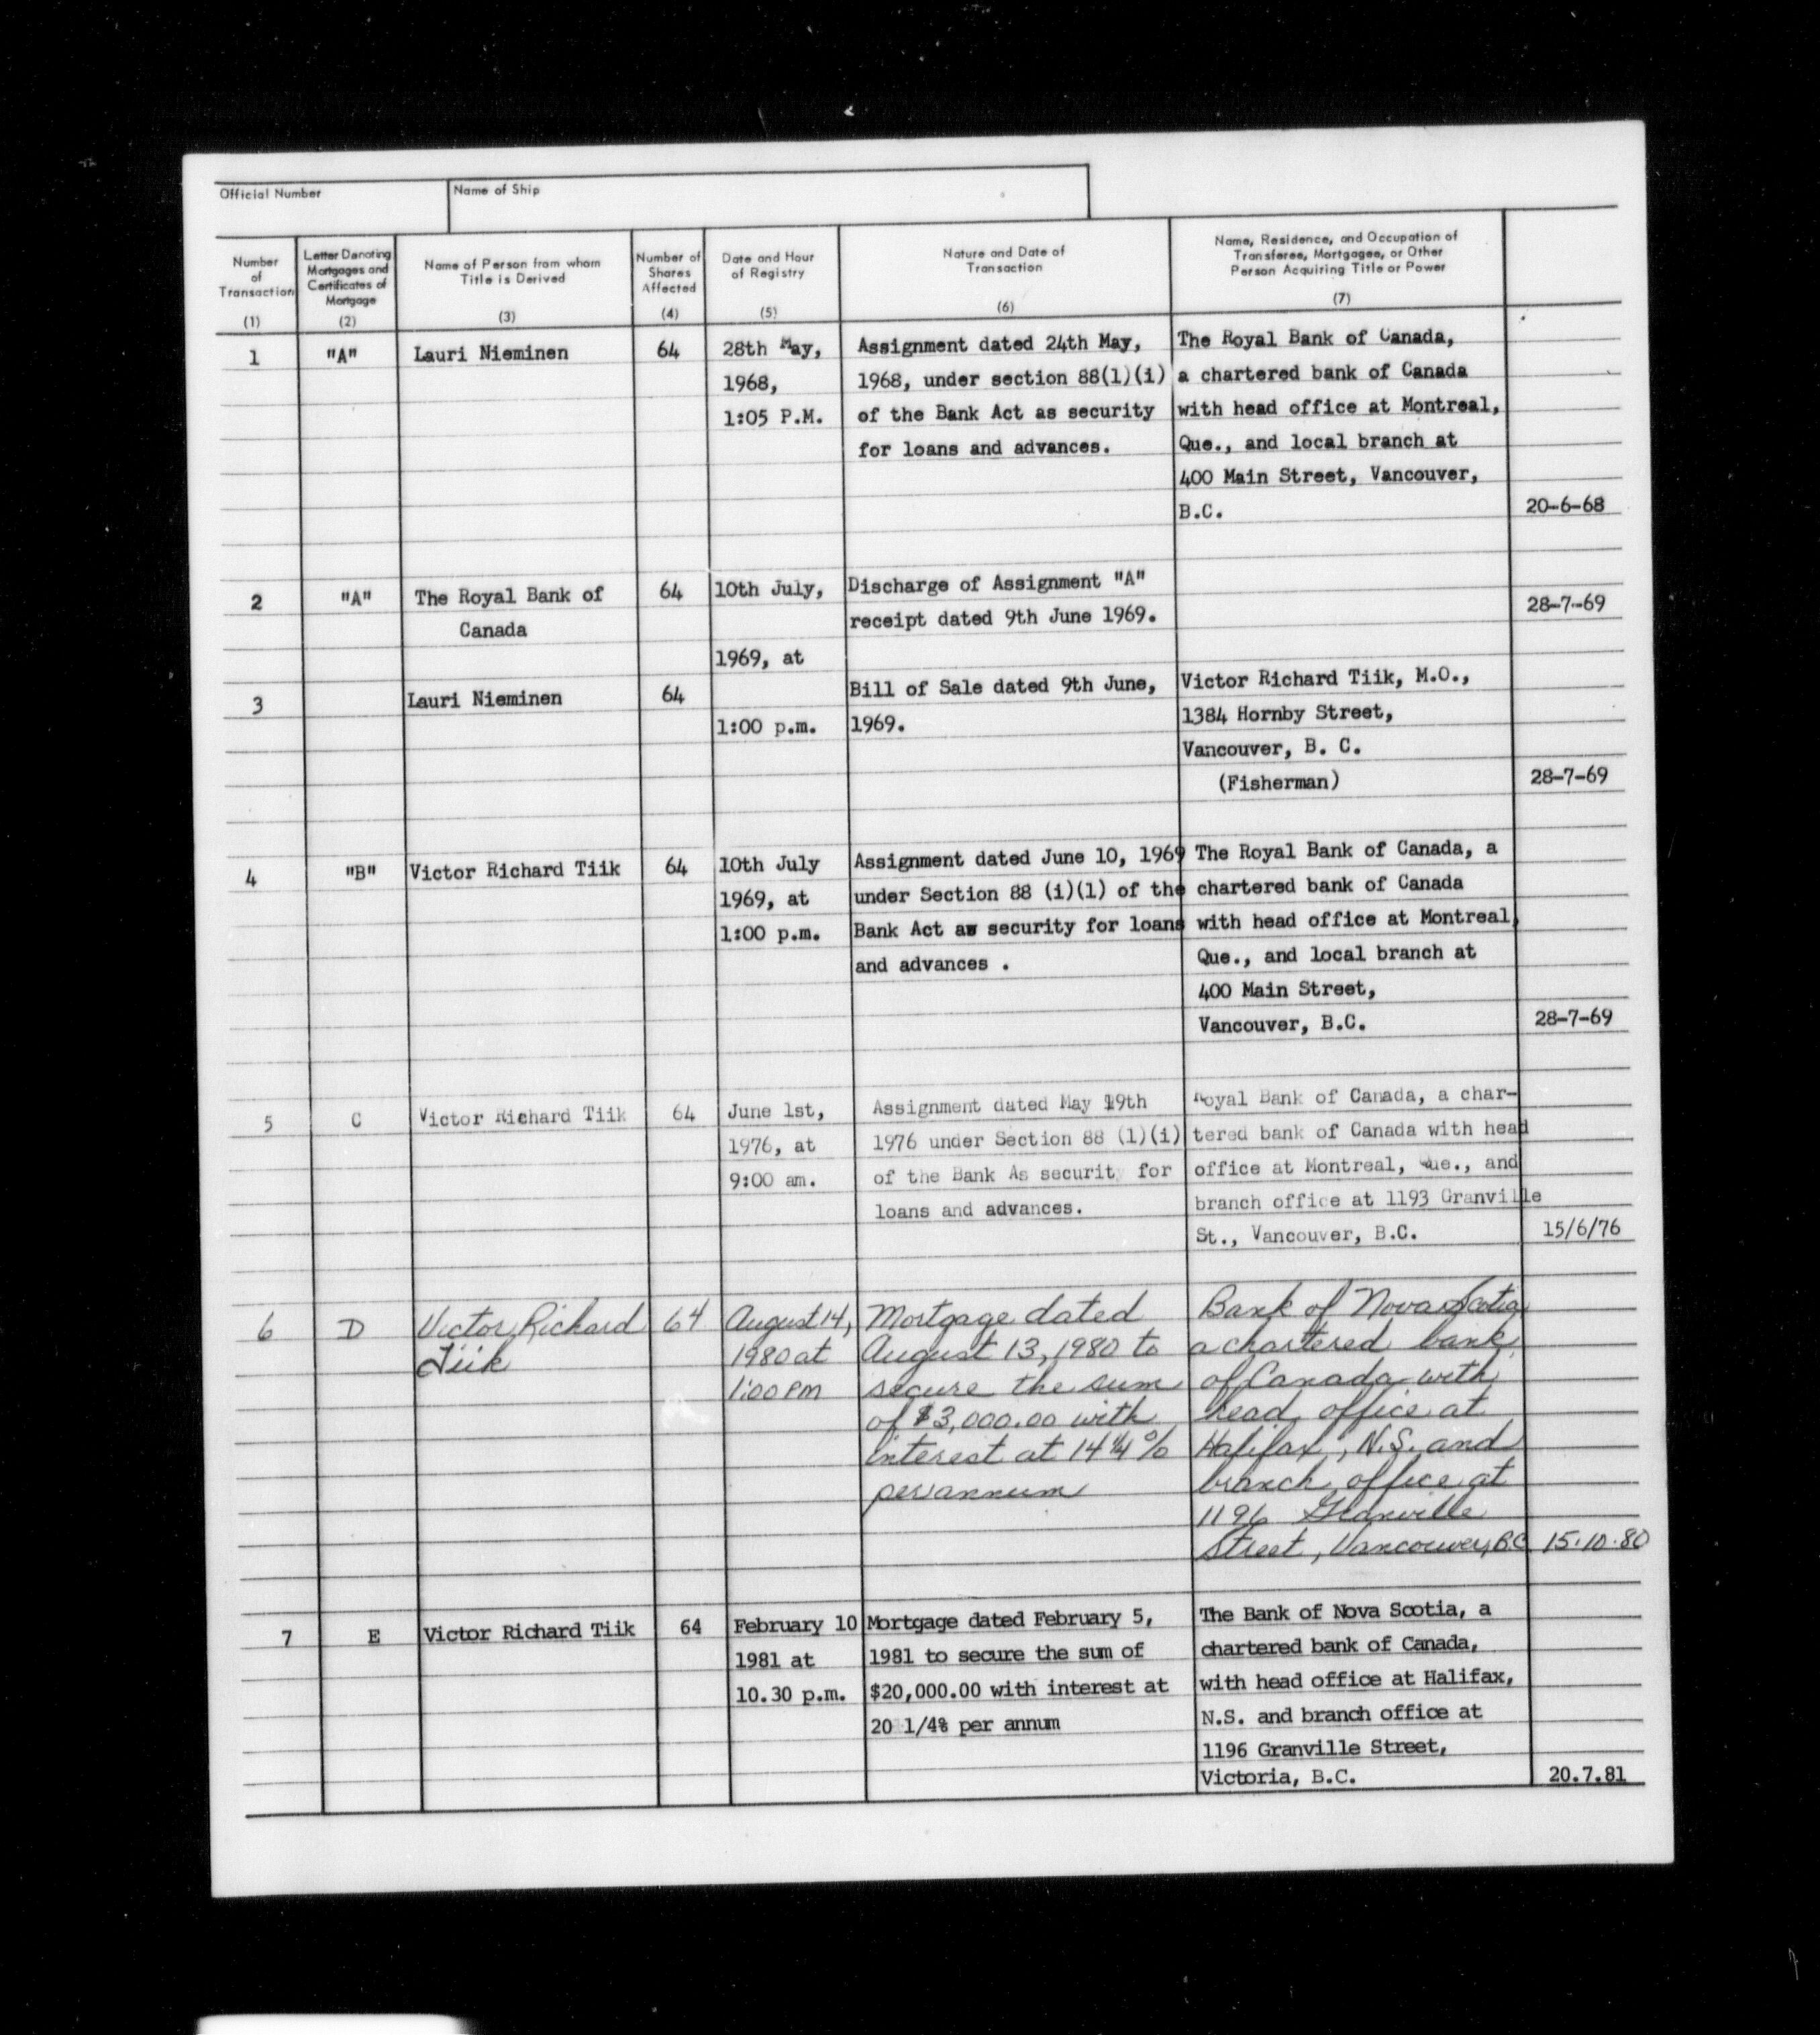 Official Number
Name of Ship
Number
of
Transaction
(1)
Letter Denoting
Mortgages and
Certificates of
Mortgage
(2)
Name of Person from whom
Title is Derived
(3)
Number of
Shares
Affected
(4)
Date and Hour
of Registry
(5)
Nature and Date of
Transaction
(6)
Name, Residence, and Occupation of
Transferee, Mortgagee, or Other
Person Acquiring Title or Power
(7)
1
"A"
Lauri Nieminen
64
28th May,
1968,
1:05 P.M.
Assignment dated 24th May,
1968, under section 88(1)(i)
of the Bank Act as security
for loans and advances.
The Royal Bank of Canada,
a chartered bank of Canada
with head office at Montreal,
Que., and local branch at
400 Main Street, Vancouver,
B.C.
20-6-68
2
"A"
The Royal Bank of
Canada
64
10th July,
1969, at
1:00 p.m.
Discharge of Assignment "A"
receipt dated 9th June 1969.
28-7-69
3
Lauri Nieminen
64
Bill of Sale dated 9th June,
1969.
Victor Richard Tiik, M.O.,
1384 Hornby Street,
Vancouver, B. C.
(Fisherman)
28-7-69
4
"B"
Victor Richard Tiik
64
10th July
1969, at
1:00 p.m.
Assignment dated June 10, 1969
under Section 88 (i)(1) of the
Bank Act as security for loans
and advances .
The Royal Bank of Canada, a
chartered bank of Canada
with head office at Montreal,
Que., and local branch at
400 Main Street,
Vancouver, B.C.
28-7-69
5
C
Victor Richard Tiik
64
June 1st,
1976, at
9:00 am.
Assignment dated May 19th
1976 under Section 88 (1)(i)
of the Bank As security for
loans and advances.
Royal Bank of Canada, a char-
tered bank of Canada with head
office at Montreal, Que., and
branch office at 1193 Granville
St., Vancouver, B.C.
15/6/76
6
D
Victor Richard
Tiik
64
August 14,
1980 at
1:00 PM
Mortgage dated
August 13, 1980 to
secure the sum
of $3,000.00 with
interest at 14 1/4 %
per annum
Bank of Nova Scotia
a chartered bank
of Canada with
head office at
Halifax, N.S. and
branch office at
1196 Granville
Street, Vancouver, BC
15.10.80
7
E
Victor Richard Tiik
64
February 10
1981 at
10.30 p.m.
Mortgage dated February 5,
1981 to secure the sum of
$20,000.00 with interest at
20 1/4% per annum
The Bank of Nova Scotia, a
chartered bank of Canada,
with head office at Halifax,
N.S. and branch office at
1196 Granville Street,
Victoria, B.C.
20.7.81